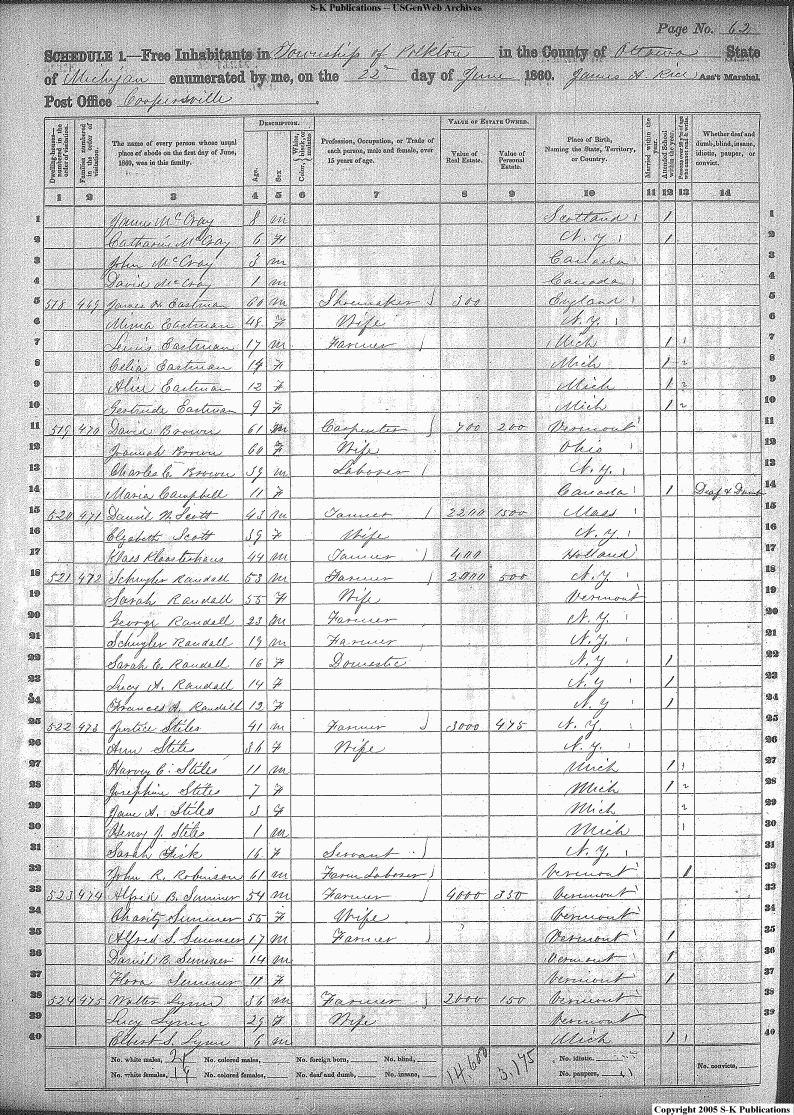 S-K Publications -- USGenWeb Archives
Page No. 62
SCHEDULE 1.—Free Inhabitants in Township of Polkton in the County of Ottawa State
of Michigan enumerated by me, on the 22 day of June 1860. James A. Rice Ass't Marshal.
Post Office Coopersville
DESCRIPTION. VALUE OF ESTATE OWNED.
Dwelling-houses—numbered in the order of visitation. Families numbered in the order of visitation. The name of every person whose usual place of abode on the first day of June, 1860, was in this family. Age. Sex. Color, White, black, or mulatto. Profession, Occupation, or Trade of each person, male and female, over 15 years of age. Value of Real Estate. Value of Personal Estate. Place of Birth, Naming the State, Territory, or Country. Married within the year. Attended School within the year. Whether deaf and dumb, blind, insane, idiotic, pauper, or convict.
1 2 3 4 5 6 7 8 9 10 11 12 13 14
1 James McCray 8 m Scotland 1 1
2 Catharine McCray 6 F N.Y. 1 2
3 John McCray 3 m Canada 3
4 David McCray 1 m Canada 4
5 518 469 James H Eastman 60 m Shoemaker 300 England 5
6 Eastman 48 F Wife N.Y. 6
7 Lewis Eastman 17 m Farmer Mich 1 1 7
8 Celia Eastman 14 F Mich 1 2 8
9 Alice Eastman 12 F Mich 1 2 9
10 Gertrude Eastman 9 F Mich 1 2 10
11 519 470 David Brown 61 m Carpenter 700 200 Vermont 11
12 Brown 60 F Wife Ohio 12
13 Charles C. Brown 39 m Laborer N.Y. 13
14 Maria Campbell 11 F Canada 1 Deaf & Dumb 14
15 520 471 Daniel W. Scott 43 m Farmer 2200 1500 Mass 15
16 Elizabeth Scott 39 F Wife N.Y. 16
17 Klaas Kloosterhaus 44 m Farmer 400 Holland 17
18 521 472 Schuyler Randall 53 m Farmer 2000 500 N.Y. 18
19 Sarah Randall 55 F Wife Vermont 19
20 George Randall 23 m Farmer N.Y. 20
21 Schuyler Randall 19 m Farmer N.Y. 21
22 Sarah E. Randall 16 F Domestic N.Y 1 22
23 Lucy A. Randall 14 F N.Y 1 23
24 Frances A. Randall 12 F N.Y 1 24
25 522 473 Justice Stiles 41 m Farmer 3000 475 N.Y. 25
26 Ann Stiles 36 F Wife N.Y. 26
27 Harvey C. Stiles 11 m Mich 1 1 27
28 Josephine Stiles 7 F Mich 1 2 28
29 Jane A. Stiles 3 F Mich 2 29
30 Henry J. Stiles 1 m Mich 1 30
31 Sarah Fisk 16 F Servant N.Y. 31
32 John R. Robinson 61 m Farm Laborer Vermont 1 32
33 523 474 Alfred B. Sumner 54 m Farmer 4000 350 Vermont 33
34 Charity Sumner 55 F Wife Vermont 34
35 Alfred S. Sumner 17 m Farmer Vermont 1 35
36 Daniel B. Sumner 14 m Vermont 1 36
37 Flora Sumner 11 F Vermont 1 37
38 524 475 Walter Lynn 36 m Farmer 2000 150 Vermont 38
39 Lucy Lynn 29 F Wife Vermont 39
40 Elbert S. Lynn 6 m Mich 1 1 40
No. white males, 21 No. colored males, No. foreign born, No. blind, 14.600 3.175 No. idiotic. No. convicts,
No. white females, 19 No. colored females, No. deaf and dumb, No. insane, No. paupers,
Copyright 2005 S-K Publications